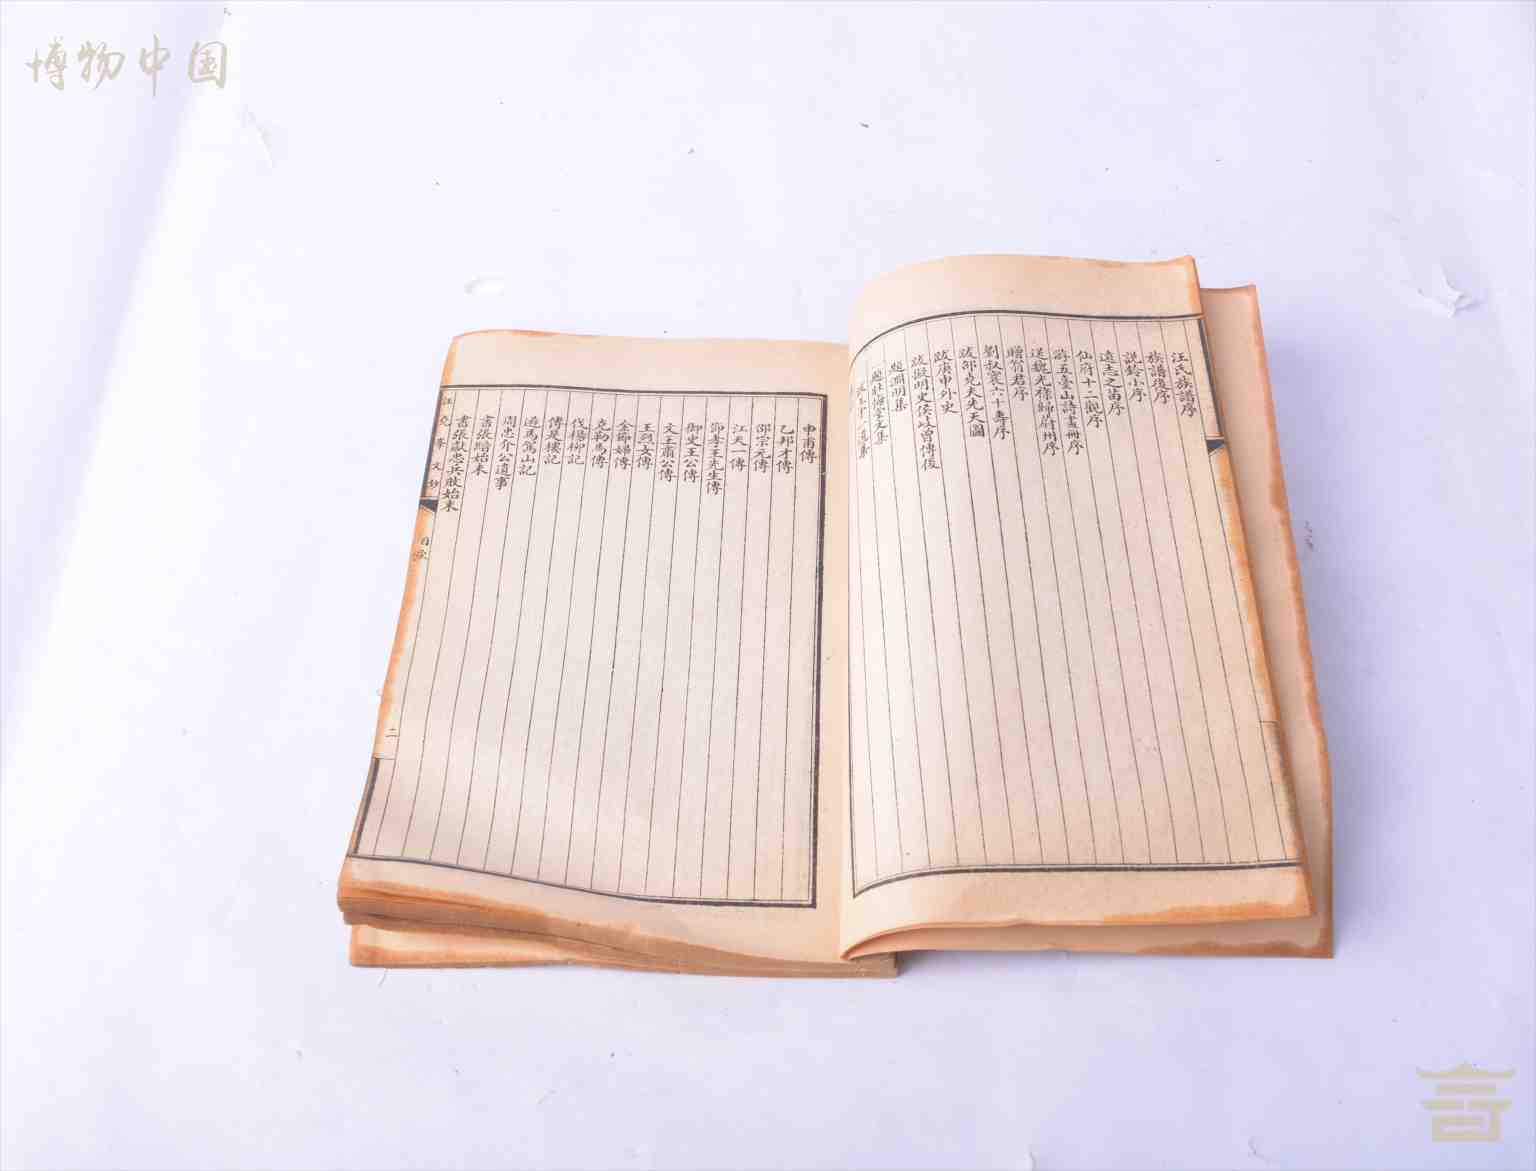 博物中国
汪氏族譜序
族譜後序
說鈴小序
遠志之苗序
仙府十二觀序
游五臺山詩畫冊序
送魏光祿歸蔚州序
贈翁君序
劉叔寰六十壽序
跋邵堯夫先天圖
跋庚申外史
跋擬明史侯岐曾傳後
題淵明集
申甫傳
乙邦才傳
邵宗元傳
江天一傳
節孝王先生傳
御史王公傳
文王肅公傳
王烈女傳
金節婦傳
克勒馬傳
伐楊柳記
傳是樓記
遊馬駕山記
周忠介公遺事
書張繒始末
書張獻忠兵敗始末
汪堯峯文鈔
目次
二